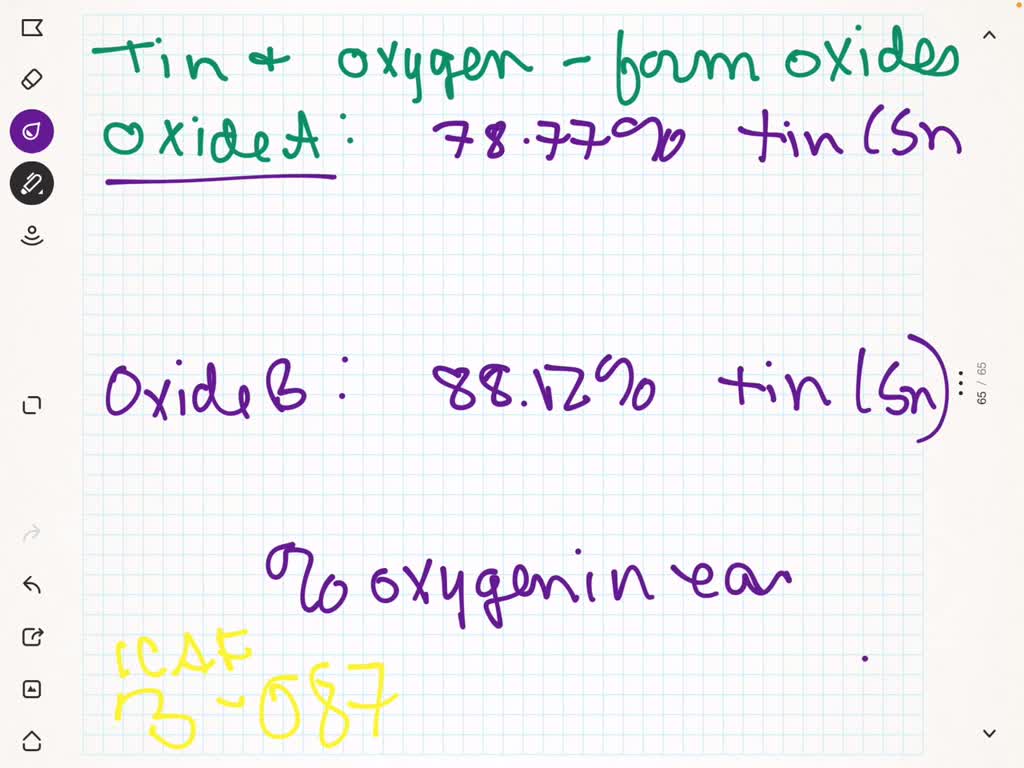 Tin + oxygen - form oxides
Oxide A: 78.77% tin (Sn
Oxide B: 88.12% tin (Sn)
% oxygen in ea
65 / 65
3-087